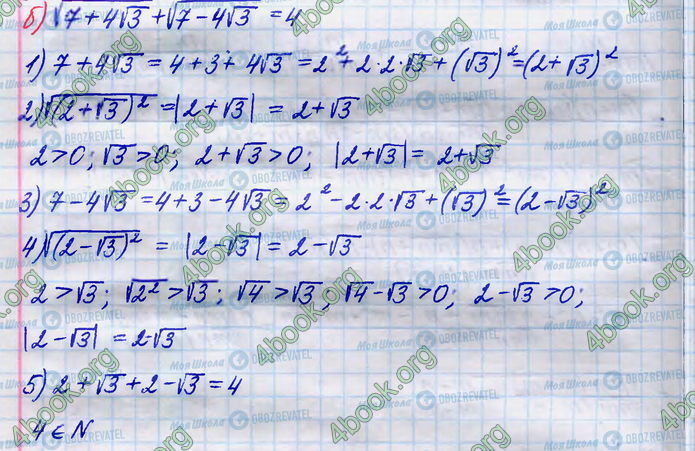 б) √(7+4√3) + √(7-4√3) = 4
1) 7+4√3 = 4+3+4√3 = 2²+2·2·√3+(√3)²=(2+√3)²
2) √((2+√3)²) = |2+√3| = 2+√3
2>0; √3>0; 2+√3>0; |2+√3| = 2+√3
3) 7-4√3 = 4+3-4√3 = 2²-2·2·√3+(√3)²=(2-√3)²
4) √((2-√3)²) = |2-√3| = 2-√3
2>√3; √2²>√3; √4>√3; √4-√3>0; 2-√3>0;
|2-√3| = 2-√3
5) 2+√3+2-√3=4
4 ∈ N
4book.org
Моя Школа
OBOZREVATEL